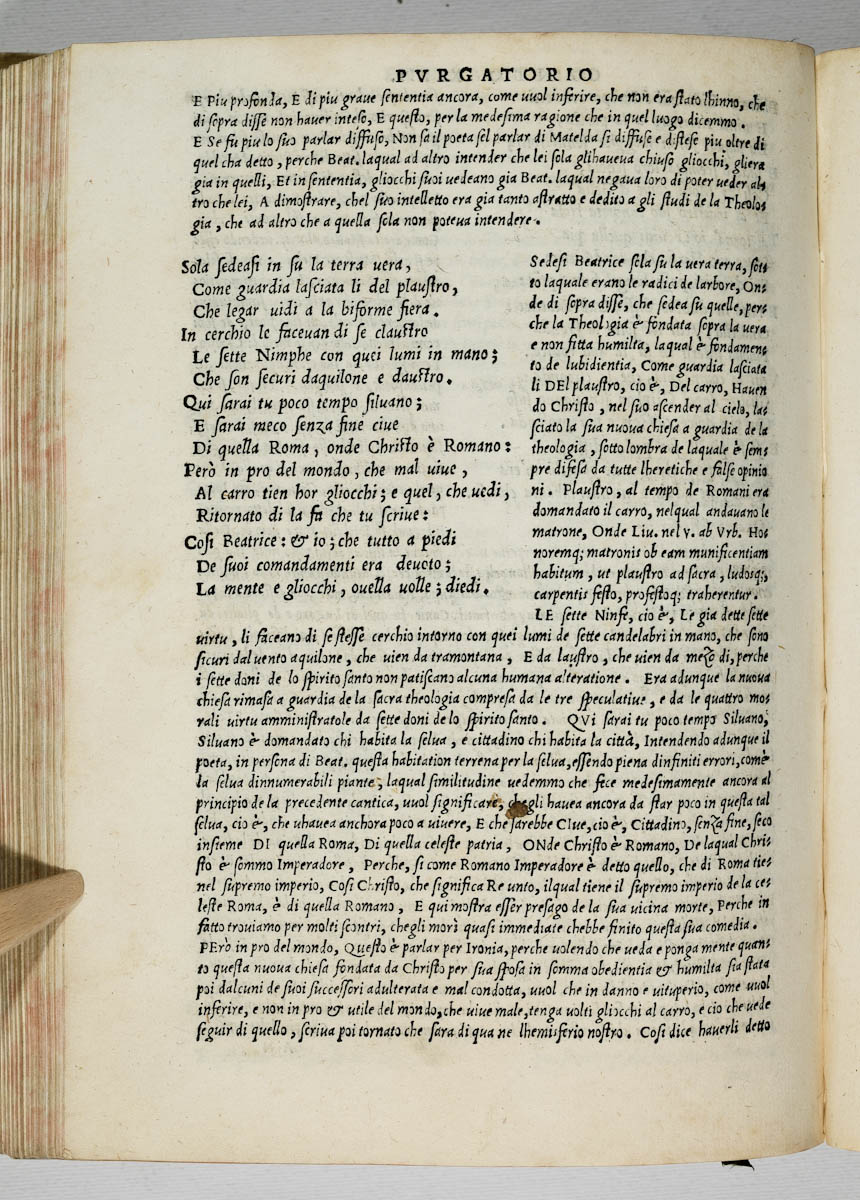 PVRGATORIO
E Piu profonda, E di piu graue sententia ancora, come uuol inferire, che non era stato lhinno, che
di sopra disse non hauer inteso, E questo, per la medesima ragione che in quel luogo dicemmo.
E Se fu piu lo suo parlar diffuso, Non sa il poeta sel parlar di Matelda si diffuse e distese piu oltre di
quel cha detto, perche Beat. laqual ad altro intender che lei sola glihaueua chiuso gliocchi, gliera
gia in quelli, Et in sententia, gliocchi suoi uedeano gia Beat. laqual negaua loro di poter ueder al-
tro che lei, A dimostrare, chel suo intelletto era gia tanto astratto e dedito a gli studi de la Theolo-
gia, che ad altro che a quella sola non poteua intendere.
Sola sedeasi in su la terra uera,
Come guardia lasciata li del plaustro,
Che legar uidi a la biforme fiera.
In cerchio le faceuan di se claustro
Le sette Nimphe con quei lumi in mano;
Che son securi daquilone e daustro.
Qui sarai tu poco tempo siluano;
E sarai meco senza fine ciue
Di quella Roma, onde Christo è Romano:
Però in pro del mondo, che mal uiue,
Al carro tien hor gliocchi; e quel, che uedi,
Ritornato di la fa che tu scriue:
Cosi Beatrice: & io; che tutto a piedi
De suoi comandamenti era deuoto;
La mente e gliocchi, ouella uolle; diedi.
Sedesi Beatrice sola su la uera terra, sot-
to laquale erano le radici de larbore, On-
de di sopra disse, che sedea su quelle, per-
che la Theologia è fondata sopra la uera
e non fitta humilta, laqual è fondamen-
to de lubidientia, Come guardia lasciata
li DEl plaustro, cio è, Del carro, Hauen
do Christo, nel suo ascender al cielo, la-
sciato la sua nuoua chiesa a guardia de la
theologia, sotto lombra de laquale è sem-
pre difesa da tutte lheretiche e false opinio
ni. Plaustro, al tempo de Romani era
domandato il carro, nelqual andauano le
matrone, Onde Liu. nel v. ab Vrb. Ho-
noremq; matronis ob eam munificentiam
habitum, ut plaustro ad sacra, ludosq;,
carpentis festo, profestoq; traherentur.
LE sette Ninfe, cio è, Le gia dette sette
uirtu, li faceano di se stesse cerchio intorno con quei lumi de sette candelabri in mano, che sono
sicuri dal uento aquilone, che uien da tramontana, E da laustro, che uien da mezo di, perche
i sette doni de lo spirito santo non patiscano alcuna humana alteratione. Era adunque la nuoua
chiesa rimasa a guardia de la sacra theologia compresa da le tre speculatiue, e da le quattro mo-
rali uirtu amministratole da sette doni de lo spirito santo. QVi sarai tu poco tempo Siluano,
Siluano è domandato chi habita la selua, e cittadino chi habita la città, Intendendo adunque il
poeta, in persona di Beat. questa habitation terrena per la selua, essendo piena dinfiniti errori, comè
la selua dinnumerabili piante, laqual similitudine uedemmo che fece medesimamente ancora al
principio de la precedente cantica, uuol significare, chegli hauea ancora da star poco in questa tal
selua, cio è, che uhauea anchora poco a uiuere, E che sarebbe CIue, cio è, Cittadino, senza fine, seco
insieme DI quella Roma, Di quella celeste patria, ONde Christo è Romano, De laqual Chri-
sto è sommo Imperadore, Perche, si come Romano Imperadore è detto quello, che di Roma tie-
nel supremo imperio, Cosi Christo, che significa Re unto, ilqual tiene il supremo imperio de la ce-
leste Roma, è di quella Romano, E qui mostra esser presago de la sua uicina morte, Perche in
fatto trouiamo per molti scontri, chegli morì quasi immediate chebbe finito questa sua comedia.
PErò in pro del mondo, Questo è parlar per Ironia, perche uolendo che ueda e ponga mente quan-
to questa nuoua chiesa fondata da Christo per sua sposa in somma obedientia & humilta sia stata
poi dalcuni de suoi successori adulterata e mal condotta, uuol che in danno e uituperio, come uuol
inferire, e non in pro & utile del mondo, che uiue male, tenga uolti gliocchi al carro, e cio che uede
seguir di quello, scriua poi tornato che sara di qua ne lhemisferio nostro. Cosi dice hauerli detto